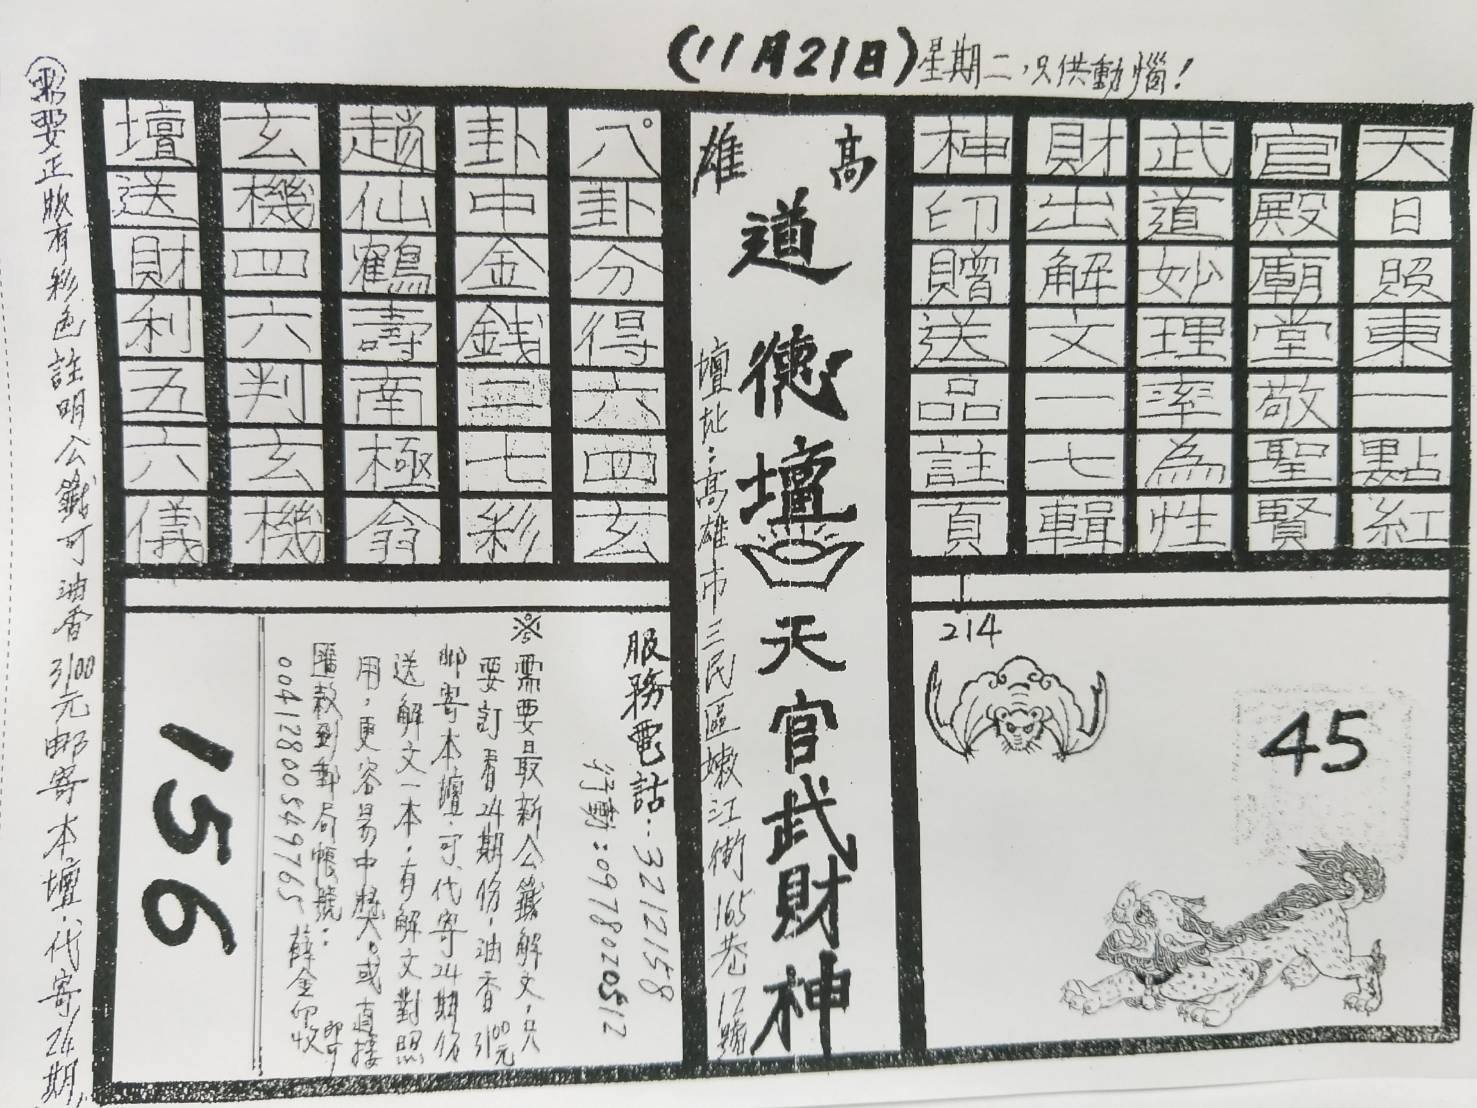 (11月21日)星期二，只供動惱！
天日照東一點紅
官殿廟堂敬聖賢
武道妙理率為性
財出解文一七輯
神印贈送品註頁
高雄
道德壇天官武財神
壇址：高雄市三民區嫩江街165巷12號
八卦分得六四玄
卦中金錢二七彩
趙仙鶴壽南極翁
玄機四六判玄機
壇送財利五六儀
214
45
服務電話：3212158
行動：0978020512
※需要最新公籤解文，只
要訂看24期份，油香3100元
郵寄本壇，可代寄24期份
送解文一本，有解文對照
用，更容易中獎。或直接
匯款到郵局帳號：
00412800549765 薛金 收即可
156
需要正版有彩色註明公籤可油香3100元邮寄本壇，代寄24期，